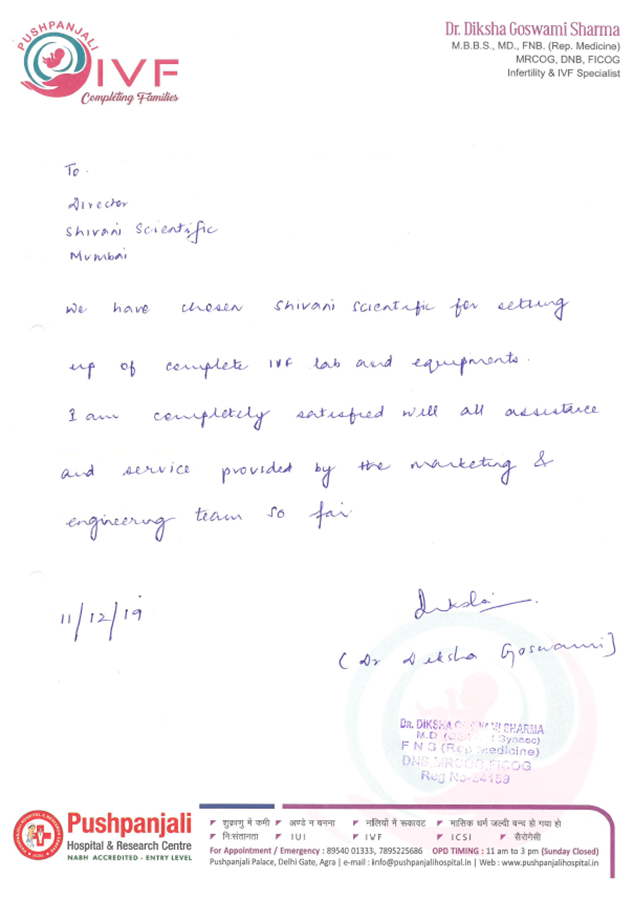 PUSHPANJALI
IVF
Completing Families
Dr. Diksha Goswami Sharma
M.B.B.S., MD., FNB. (Rep. Medicine)
MRCOG, DNB, FICOG
Infertility & IVF Specialist
To.
Director
Shivani Scientific
Mumbai
We have chosen Shivani Scientific for setting
up of complete IVF lab and equipments.
I am completely satisfied will all assistance
and service provided by the marketing &
engineering team so far
11/12/19
Diksha
(Dr Diksha Goswami)
Dr. DIKSHA GOSWAMI SHARMA
M.D (Gynaec)
(Rep Medicine)
MRCOG, FICOG
Reg No-
Pushpanjali
Hospital & Research Centre
NABH ACCREDITED - ENTRY LEVEL
शुक्राणु में कमी अण्डे न बनना नलियों में रूकावट मासिक धर्म जल्दी बन्द हो गया हो
नि:संतानता IUI IVF ICSI सैरोगेसी
For Appointment / Emergency : 89540 01333, 7895225686 OPD TIMING : 11 am to 3 pm (Sunday Closed)
Pushpanjali Palace, Delhi Gate, Agra | e-mail : info@pushpanjalihospital.in | Web : www.pushpanjalihospital.in